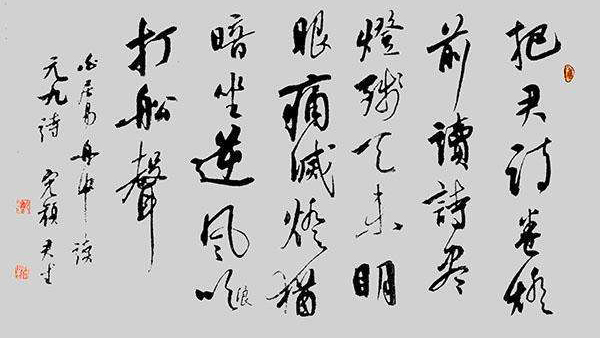 把君詩卷燈
前讀詩尽
燈殘天未明
眼痛滅燈猶
暗坐逆風吹浪
打船聲
白居易舟中读
元九詩